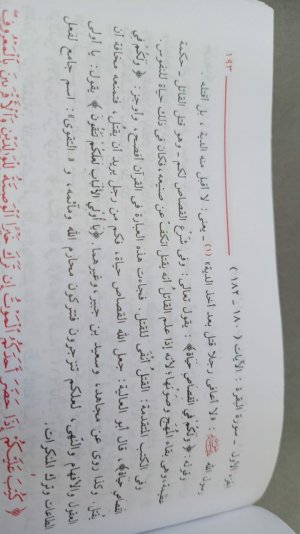 الجزء الأول - سورة البقرة : الآيات ( ١٨٠ - ١٨٢ )
١٩٣
رسول الله ﷺ : «لا أعافى رجلا قتل بعد أخذ الدية» (١) - يعنى : لا أقبل منه الدية ، بل أقتله .
وقوله : ﴿ ولكم في القصاص حياة ﴾ : يقول تعالى : وفى شرع القصاص لكم - وهو قتل القاتل - حكمة
عظيمة، وهى بقاء المهج وصونها؛ لأنه إذا علم القاتل أنه يقتل انكف عن صنيعه، فكان فى ذلك حياة للنفوس.
وفى الكتب المتقدمة: القتل أنفى للقتل. فجاءت هذه العبارة فى القرآن أفصح، وأوجز: ﴿ ولكم في
القصاص حياة ﴾. قال أبو العالية: جعل الله القصاص حياة، فكم من رجل يريد أن يقتل، فتمنعه مخافة أن
يقتل. وكذا روى عن مجاهد، وسعيد بن جبير، وغيرهما. ﴿ يا أولي الألباب لعلكم تتقون ﴾ يقول: يا أولى
العقول والأفهام والنهى، لعلكم تنزجرون فتتركون محارم الله ومآثمه، و «التقوى»: اسم جامع لفعل
الطاعات وترك المنكرات.
﴿ كُتِبَ عَلَيْكُمْ إِذَا حَضَرَ أَحَدَكُمُ الْمَوْتُ إِن تَرَكَ خَيْرًا الْوَصِيَّةُ لِلْوَالِدَيْنِ وَالْأَقْرَبِينَ بِالْمَعْرُوفِ